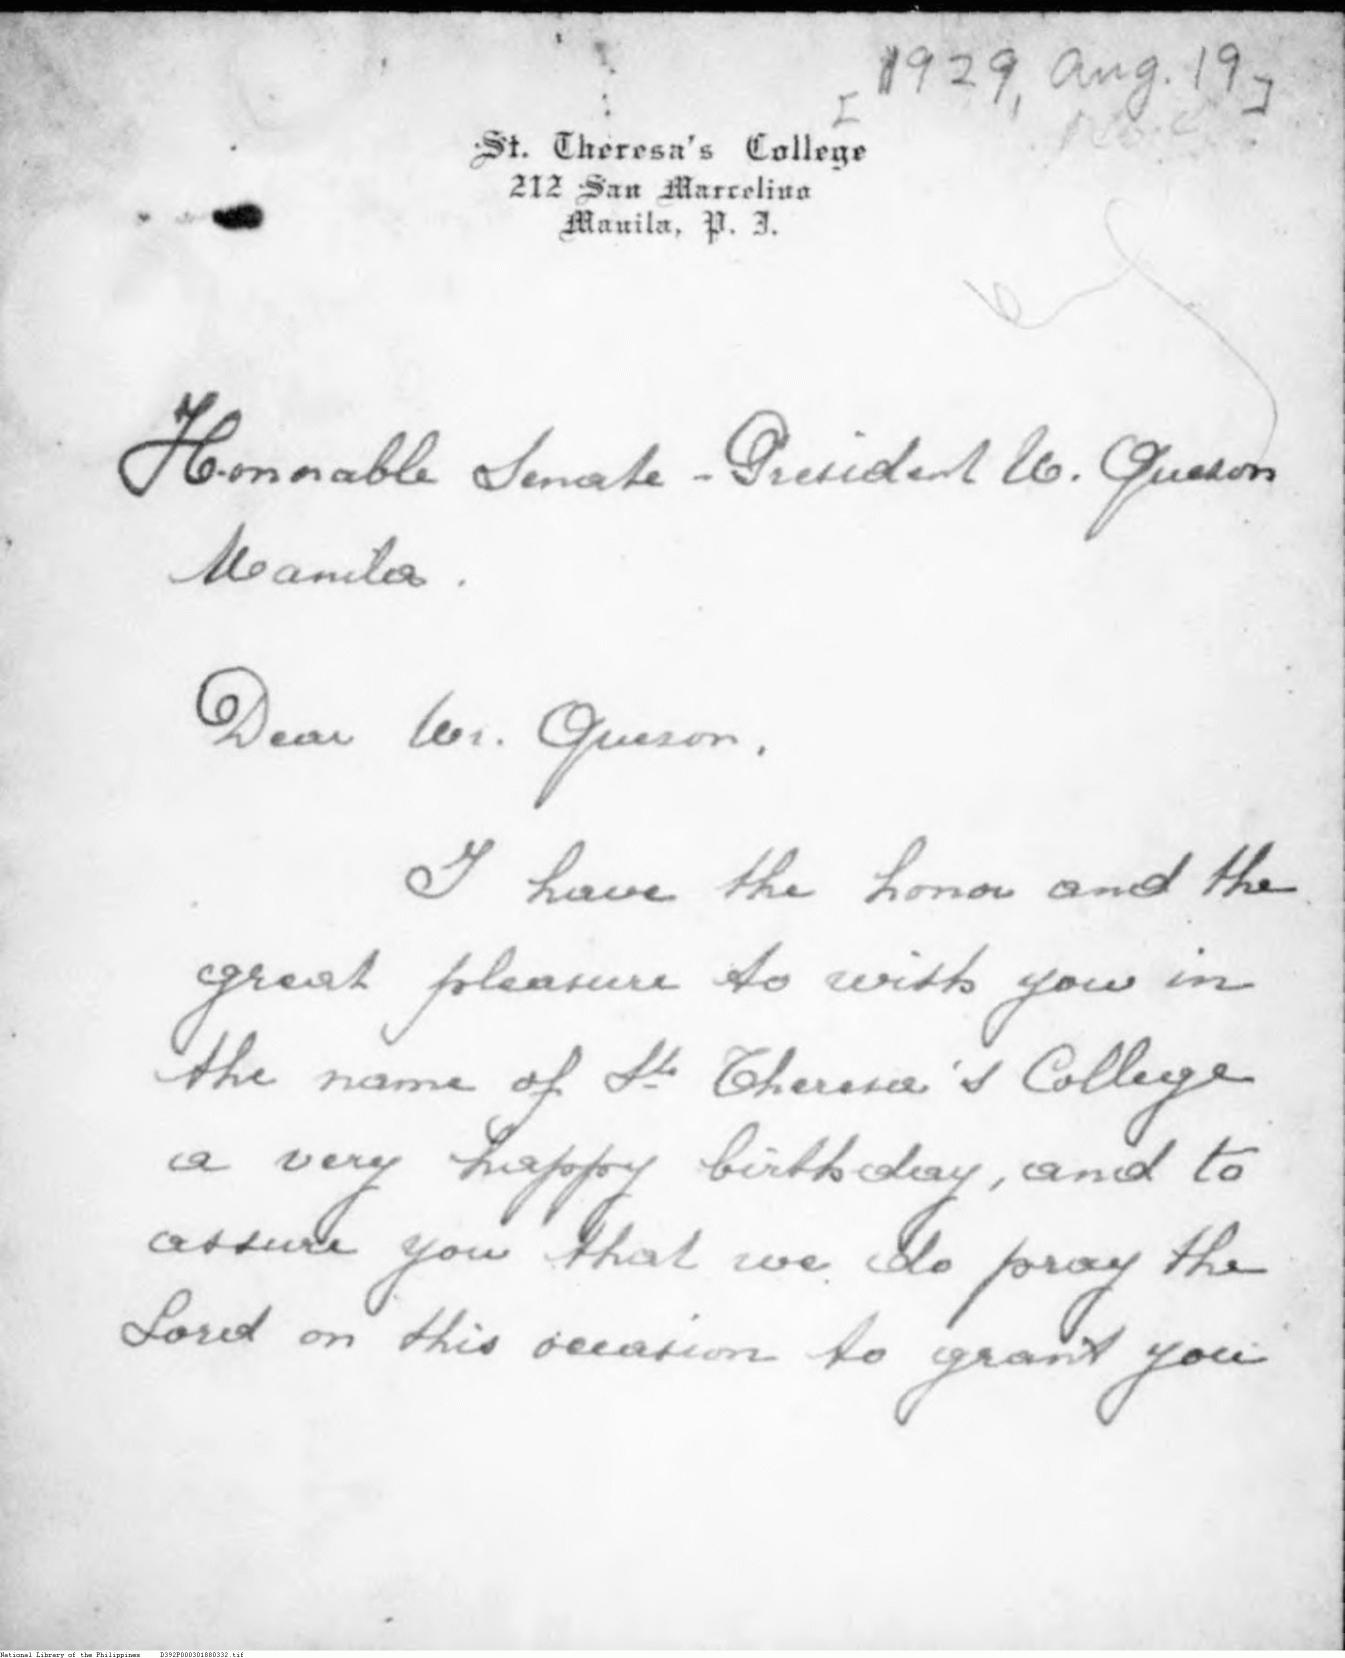 [1929, Aug. 19]
St. Theresa's College
212 San Marcelino
Manila, P. I.
Honorable Senate-President M. Queson
Manila.
Dear Mr. Queson,
I have the honor and the
great pleasure to wish you in
the name of St. Theresa's College
a very happy birthday, and to
assure you that we do pray the
Lord on this occasion to grant you
National Library of the Philippines D392P000301880332.tif